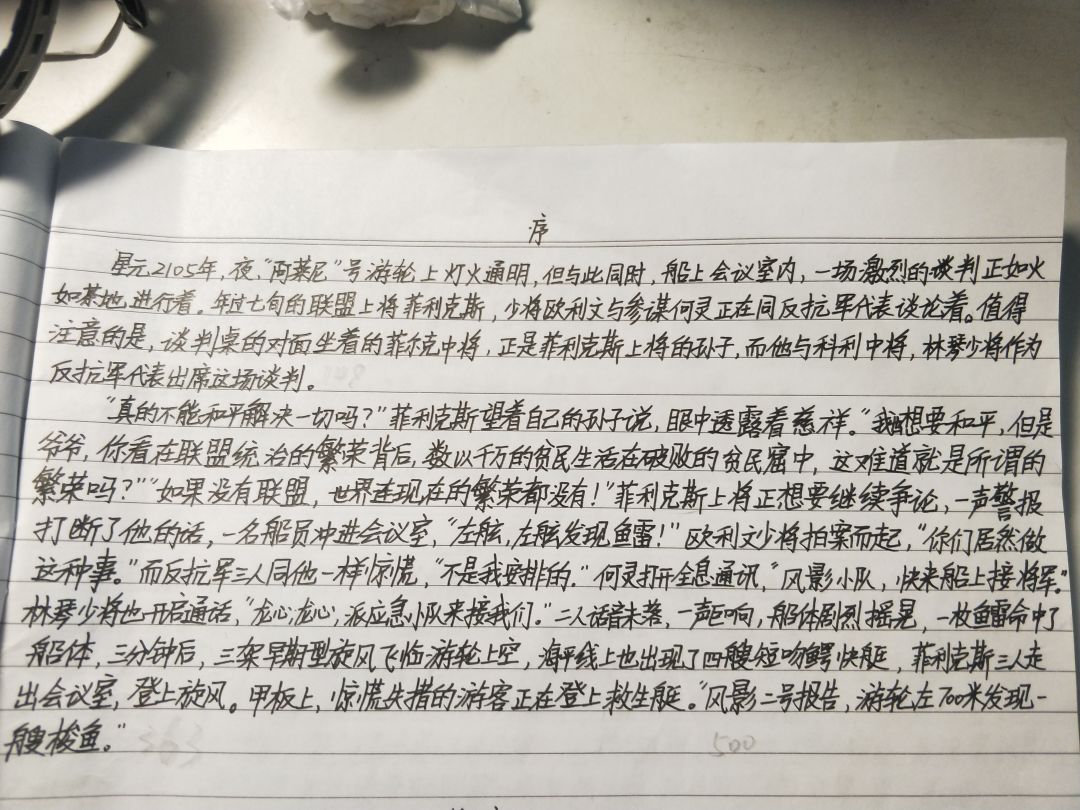 序
星元2105年，夜，"阿莱尼"号游轮上灯火通明，但与此同时，船上会议室内，一场激烈的谈判正如火
如荼地进行着。年过七旬的联盟上将菲利克斯，少将欧利文与参谋何灵正在同反抗军代表谈论着。值得
注意的是，谈判桌的对面坐着的菲尔克中将，正是菲利克斯上将的孙子，而他与科利中将，林琴少将作为
反抗军代表出席这场谈判。
"真的不能和平解决一切吗？"菲利克斯望着自己的孙子说，眼中透露着慈祥。"我想要和平，但是
爷爷，你看在联盟统治的繁荣背后，数以千万的贫民生活在破败的贫民窟中，这难道就是所谓的
繁荣吗？""如果没有联盟，世界连现在的繁荣都没有！"菲利克斯上将正想要继续争论，一声警报
打断了他的话，一名船员冲进会议室，"左舷，左舷发现鱼雷！"欧利文少将拍案而起，"你们居然做
这种事。"而反抗军三人同他一样惊慌，"不是我安排的。"何灵打开全息通讯，"风影小队，快来船上接将军。"
林琴少将也开启通话，"龙心，龙心，派应急小队来接我们。"二人话音未落，一声巨响，船体剧烈摇晃，一枚鱼雷命中了
船体，三分钟后，三架早期型旋风飞临游轮上空，海平线上也出现了四艘短吻鳄快艇，菲利克斯三人走
出会议室，登上旋风。甲板上，惊慌失措的游客正在登上救生艇。"风影二号报告，游轮左700米发现一
艘梭鱼。"
363
500